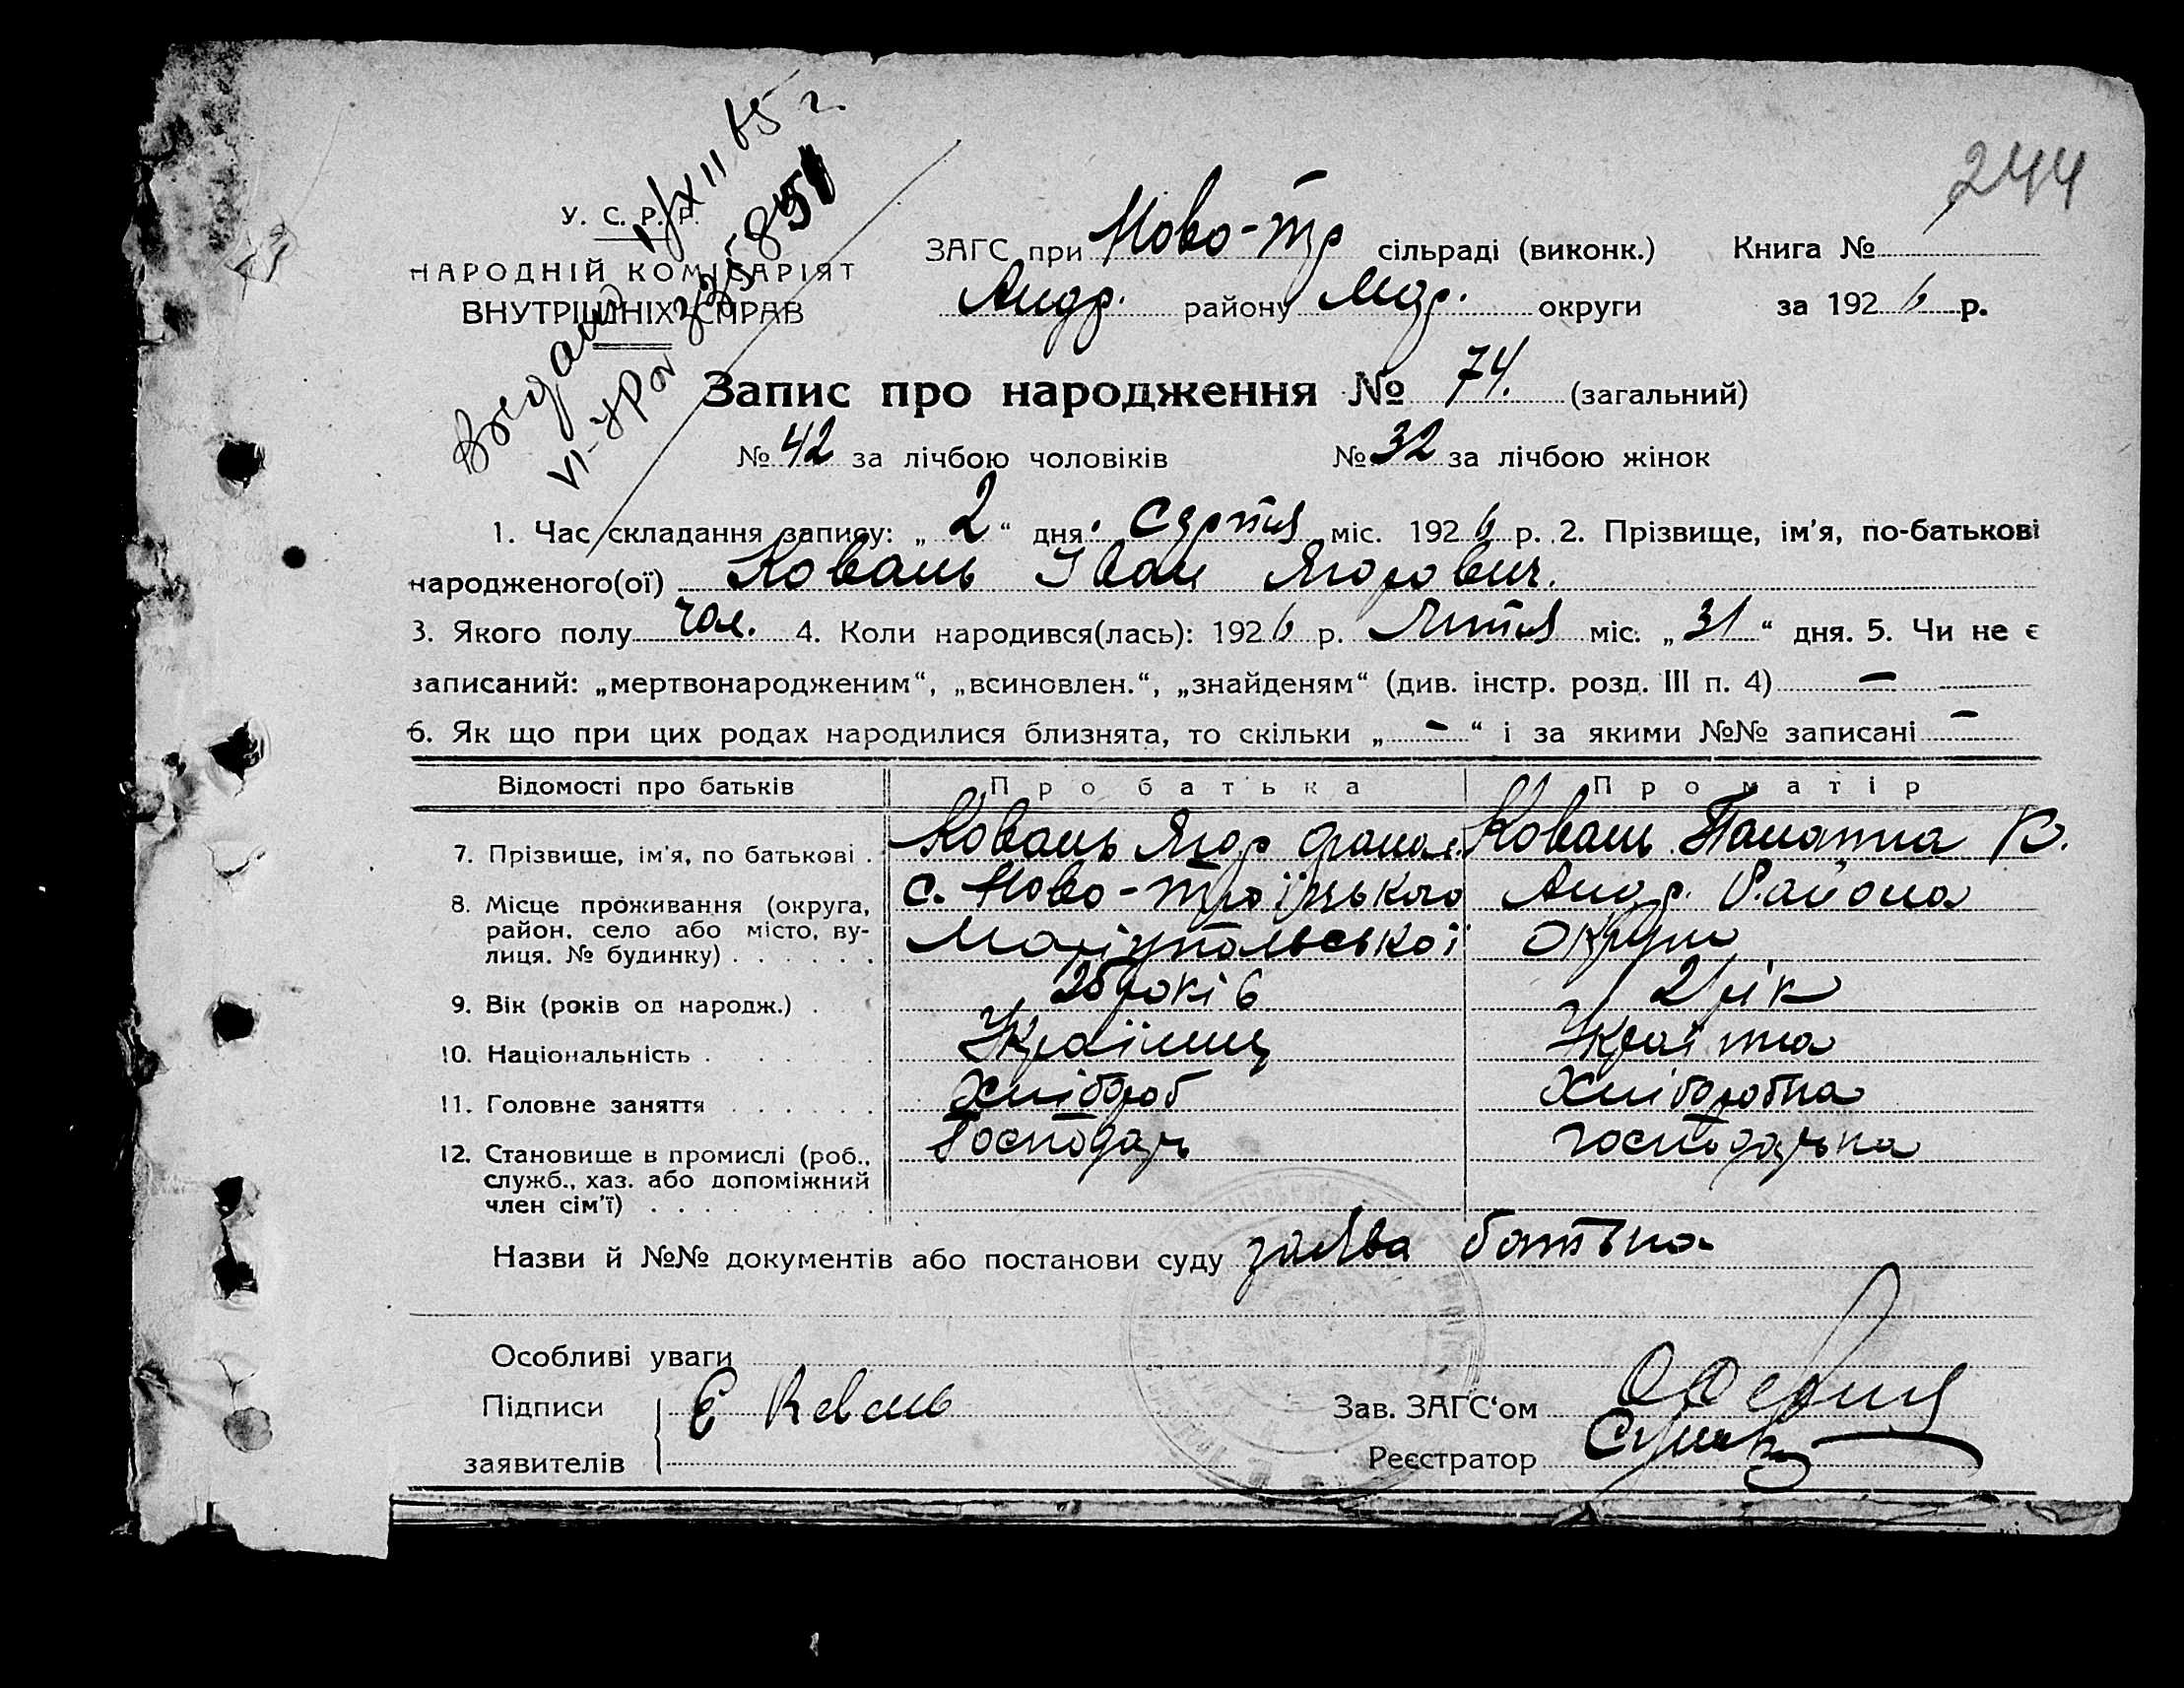 244
Выдано 1/XII 65 г.
VI-УРОЛ 335851
У. С. Р. Р.
НАРОДНІЙ КОМІСАРІЯТ
ВНУТРІШНІХ СПРАВ
ЗАГС при Ново-Тр сільраді (виконк.) Книга №
Андр. району Мар. округи за 1926 р.
Запис про народження № 74. (загальний)
№ 42 за лічбою чоловіків № 32 за лічбою жінок
1. Час складання запису: „ 2 “ дня Серпня міс. 1926 р. 2. Прізвище, ім'я, по-батькові
народженого(ої) Коваль Іван Ягорович.
3. Якого полу чол. 4. Коли народився(лась): 1926 р. Липня міс. „ 31 “ дня. 5. Чи не є
записаний: „мертвонародженим“, „всиновлен.“, „знайденям“ (див. інстр. розд. III п. 4) —
6. Як що при цих родах народилися близнята, то скільки „ - “ і за якими №№ записані —
Відомості про батьків Про батька Про матір
7. Прізвище, ім'я, по батькові . Коваль Ягор Коваль К.
8. Місце проживання (округа, с. Ново-Троїцького Андр. Района
район, село або місто, ву- Маріупольської Округи
лиця, № будинку) . . . . . .
9. Вік (років од народж.) . років 21 рік
10. Національність . . . . Українец Українка
11. Головне заняття . . . . . . Хлібороб Хліборобка
12. Становище в промислі (роб., Господарь господарька
служб., хаз. або допоміжний
член сім'ї) . . . . . . . . .
Назви й №№ документів або постанови суду заява батька
Особливі уваги
Підписи Е Коваль Зав. ЗАГС‘ом
заявителів Реєстратор